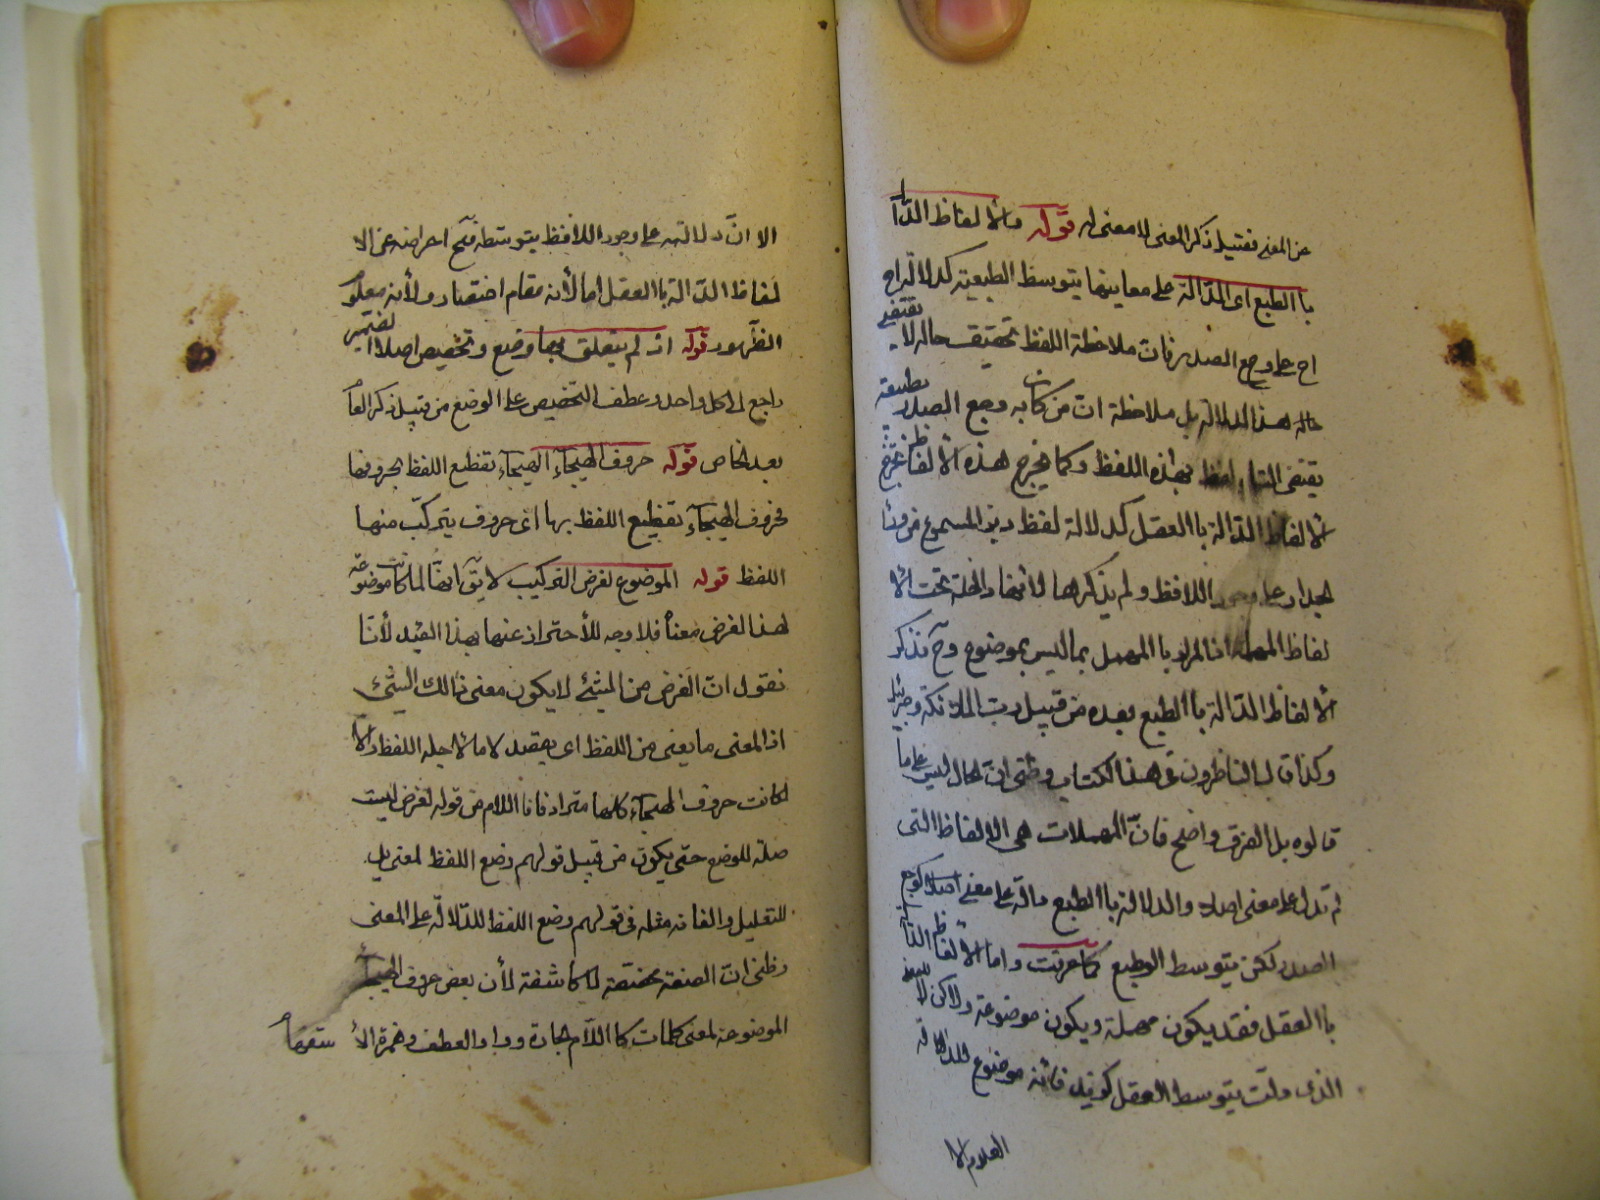 عن المعنى فقتيل ذكر المعنى لا معنى له قوله والالفاظ الدا
با الطبع اى الدالة على معاينها بتوسط الطبعية كدلالة اح
اح على وجع الصدر فان ملاحظة اللفظ تحقيق حاله لا يقتضى
حالة هذا الدلالة بل ملاحظة ان من كان به وجع الصدر بطبيعة
يقتضى التلفظ بهذه اللفظ وكما يخرج هذه الالفاظ يخرج
الالفاظ الدالة با العقل كدلالة لفظ ديز المسموع من وراء
الجدار على وجود اللافظ ولم يذكرها لأنها داخلة تحت الا
لفاظ المهملة اذ المراد با المهمل ما ليس بموضوع وح تذكر
الالفاظ الدالة با الطبع بعده من قبيل رب الملائكة وجبرئيل
وكذا قال الناظرون فى هذا الكتاب وظنى ان الحال ليس على ما
قالوه بل الفرق واضح فان المهملات هى الالفاظ التى
لم تدل على معنى اصلا والدلالة با الطبع دالة على معنى اصلا كوجع
الصدر لكن بتوسط الطبع كما عرفت واما الالفاظ الدالة
با العقل فقد يكون مهملة ويكون موضوعة ولاكن لا للمعنى
الذى دلت بتوسط العقل كزيد فانه موضوع للذات
العلوم الا
الا ان دلالته على وجود اللافظ بتوسطه فتح احراضه عن الا
لفاظ الدالة با العقل اما لأنه مقام اختصار ولأنه معلوم
الظهور قوله اذ لم يتعلق بها وضع وتخصيص اصلا الضمير
راجع الى كل واحد وعطف التخصيص على الوضع من قبيل ذكر العام
بعد الخاص قوله حروف الهيجاء الهيجاء تقطيع اللفظ بحروفها
فحروف الهيجاء تقطيع اللفظ بها اى حروف يتركب منها
اللفظ قوله الموضوع لغرض التركيب لا يق ايضا لما كانت موضوعة
لهذا لغرض معناه فلا وجه للأحتراز عنها بهذا القيد لأنا
نقول ان الغرض من الشئ لا يكون معنى ذالك الشئ
اذ المعنى ما يعنى من اللفظ اى يقصد لا ما لاجله اللفظ والا
لكانت حروف الهيجاء كلها مترادفا فا اللام من قوله لغرض ليست
صلة للوضع حتى يكون من قبيل قولهم وضع اللفظ لمعنى بل
للتعليل والغاية مثله فى قولهم وضع اللفظ للدلالة على المعنى
وظنى ان الصفة مخصصة لا كاشفة لأن بعض حروف الهيجاء
الموضوعة لمعنى كلمات كا اللام الجارة وواد العطف وهمزة الاستفهام